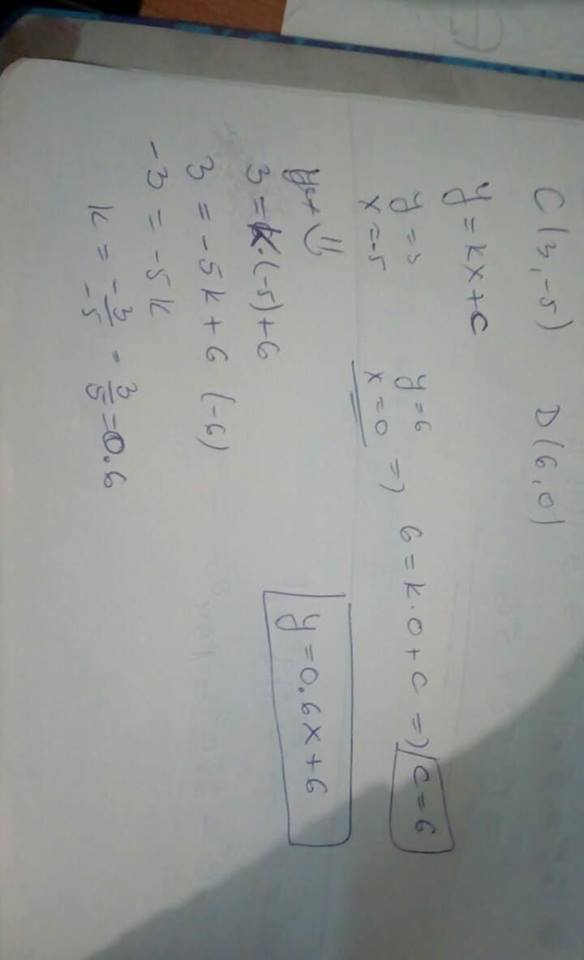 C(3,-5) D(6,0)
y=kx+c
y=3 y=6
x=-5 x=0 => 6=k·0+c => c=6
3=k·(-5)+6
3 = -5k+6 (-6)
-3 = -5k
k = -3/-5 = 3/5 = 0.6
y=0.6x+6